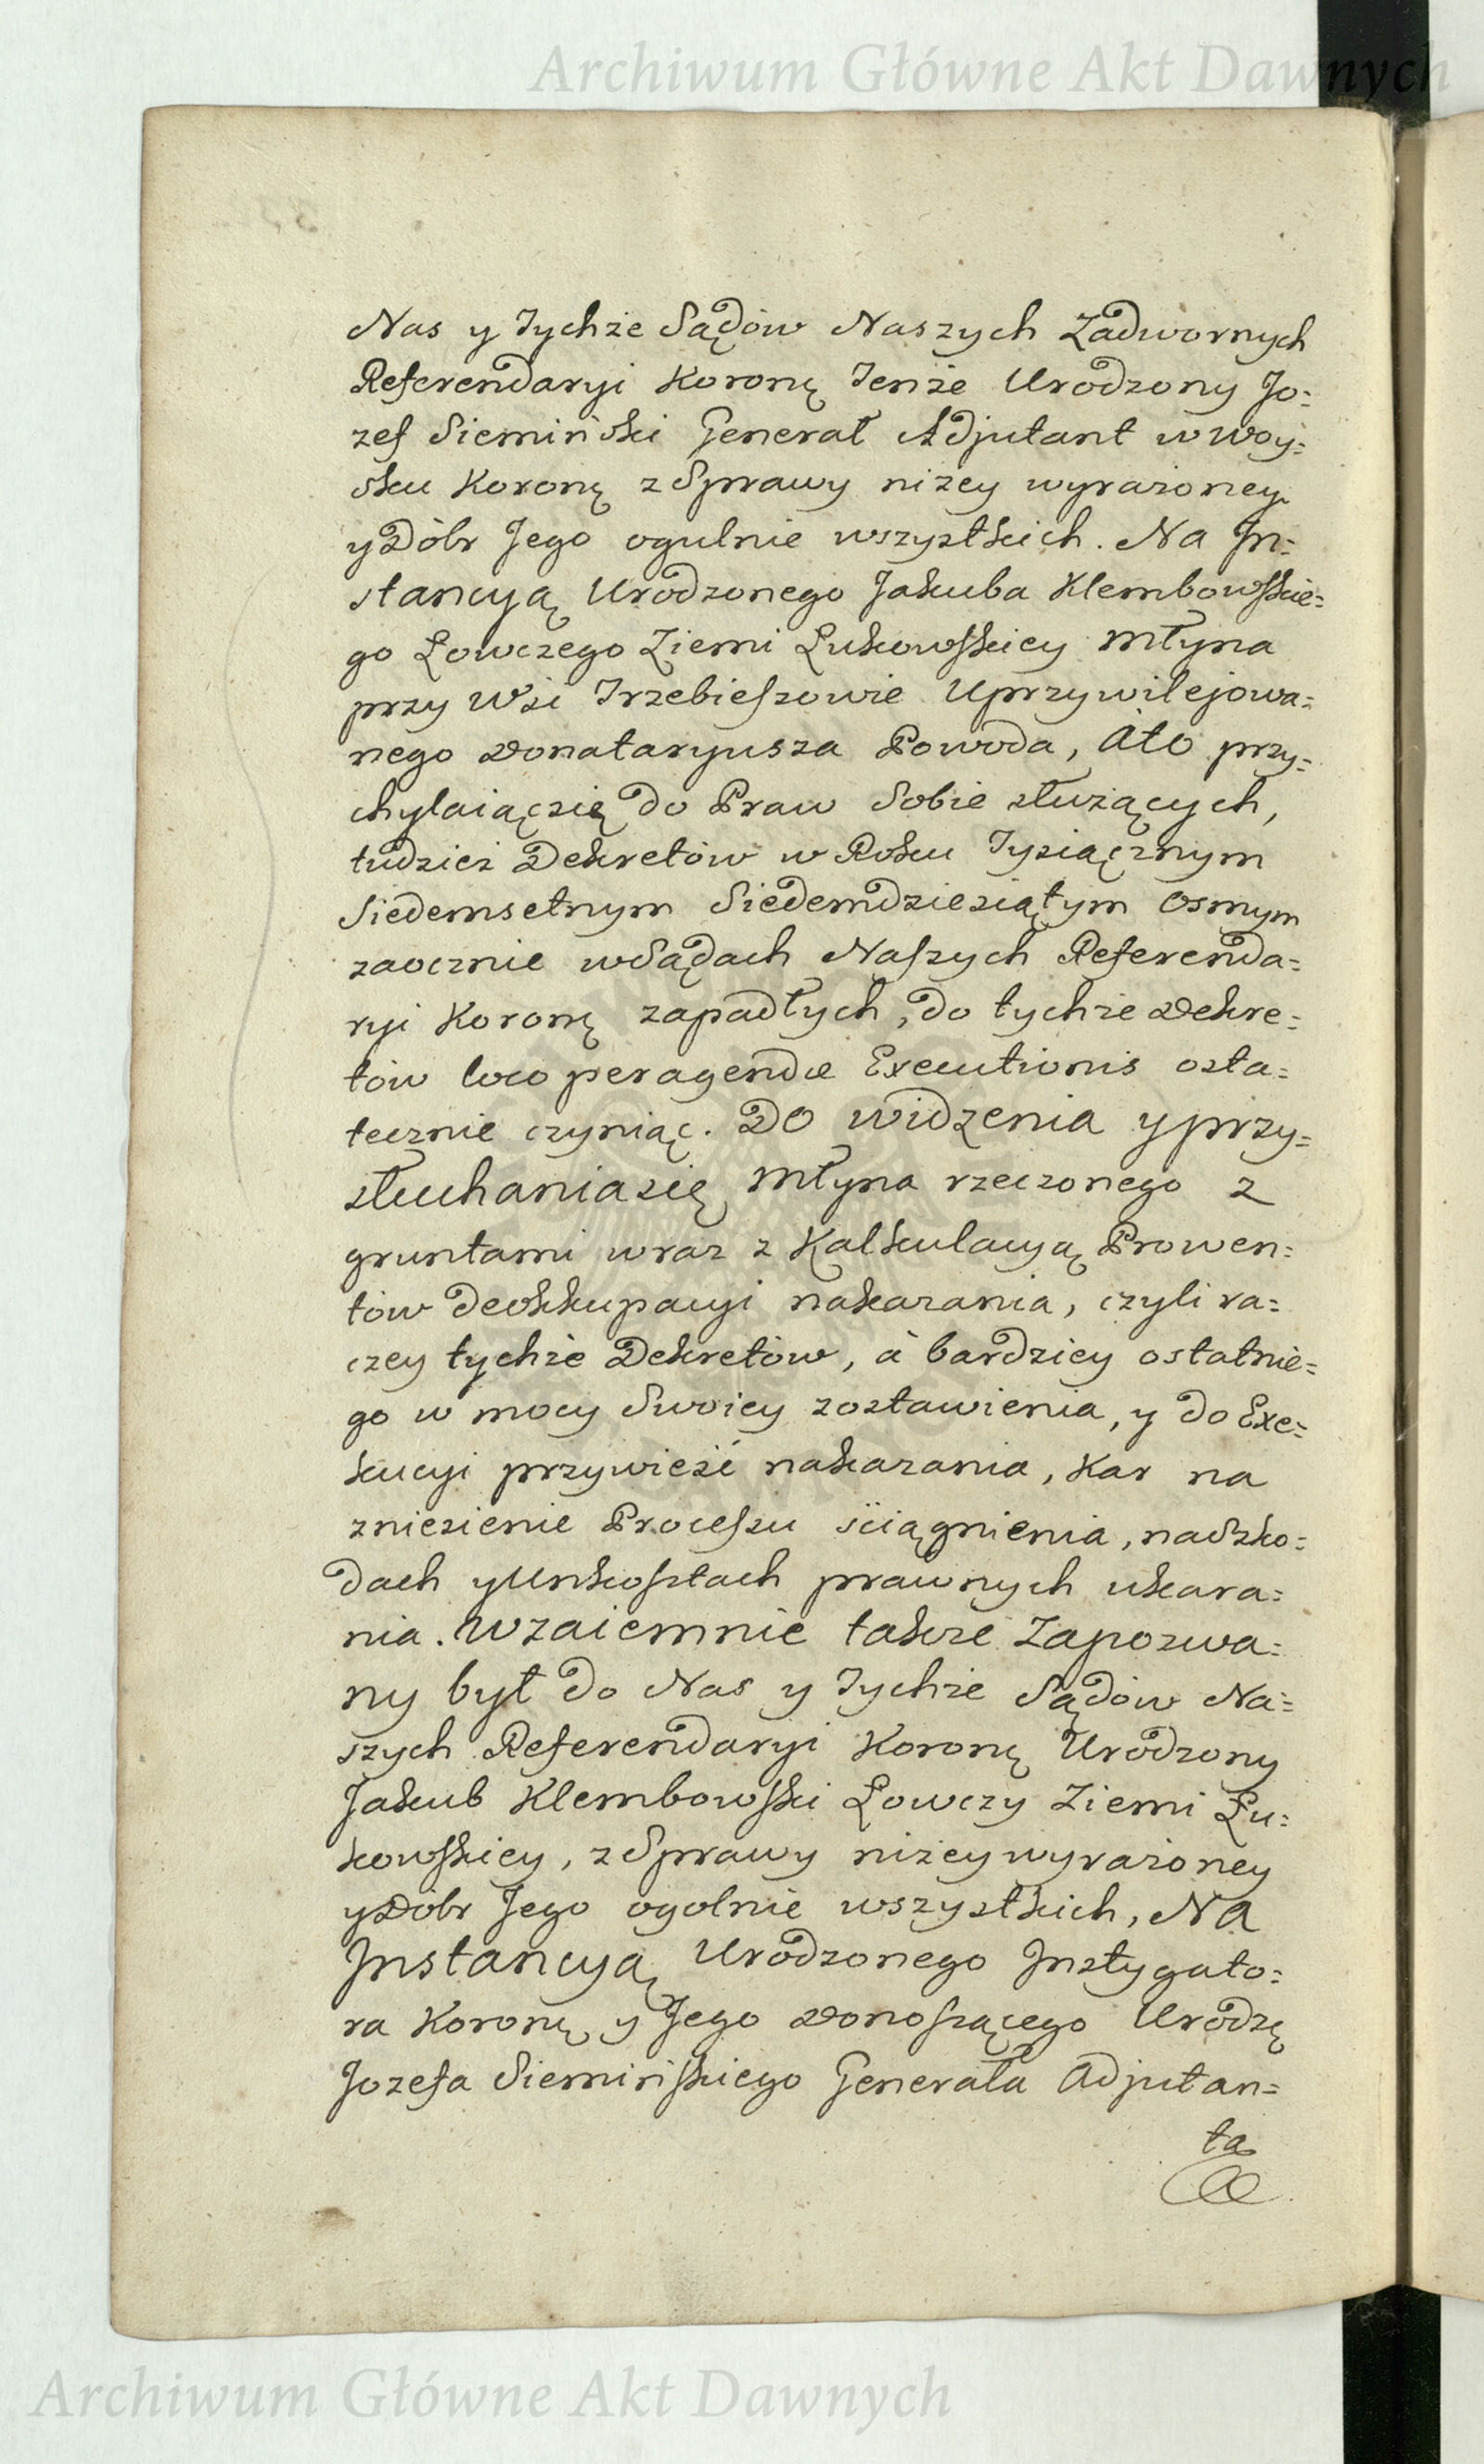 Archiwum Główne Akt Dawnych
Nas y Tychże Sądów Naszych Zadwornych
Referendaryi Koronę Tenże Urodzony Jo=
zef Siemiński Generał Adjutant w Woy=
sku Koronę z Sprawy niżey wyrażoney
y Dóbr Jego ogulnie wszystkich. Na In=
stancyą Urodzonego Jakuba Klembowskie=
go Łowczego Ziemi Łukowskiey Młyna
przy Wsi Trzebieszowie Uprzywilejowa=
nego Donataryusza Powoda, Ato przy=
chylaiąc się do Praw Sobie służących,
tudzież Dekretów w Roku Tysiącznym
Siedemsetnym Siedemdziesiątym Osmym
zaocznie w Sądach Naszych Referenda=
ryi Koronę zapadłych, do tychże Dekre=
tów loco peragendæ Executionis osta=
tecznie czyniąc. Do widzenia y przy=
słuchania się Młyna rzeczonego z
gruntami wraz z Kalkulacyą Prowen=
tów deokkupacyi nakazania, czyli ra=
czey tychże Dekretów, à bardziey ostatnie=
go w mocy Swoiey zostawienia, y do Exe=
kucyi przywieść nakazania, Kar na
zniesienie Processu ściągnienia, nadszko=
dach y Unkosztach prawnych ukara=
nia. Wzaiemnie także Zapozwa=
ny był do Nas y Tychże Sądów Na=
szych Referendaryi Koronę Urodzony
Jakub Klembowski Łowczy Ziemi Łu=
kowskiey, z Sprawy niżey wyrażoney
y Dóbr Jego ogolnie wszystkich, Na
Instancyą Urodzonego Instygato=
ra Koronę y Jego Donoszącego Urodzę
Jozefa Siemińskiego Generała Adjutan=
ta
Archiwum Główne Akt Dawnych